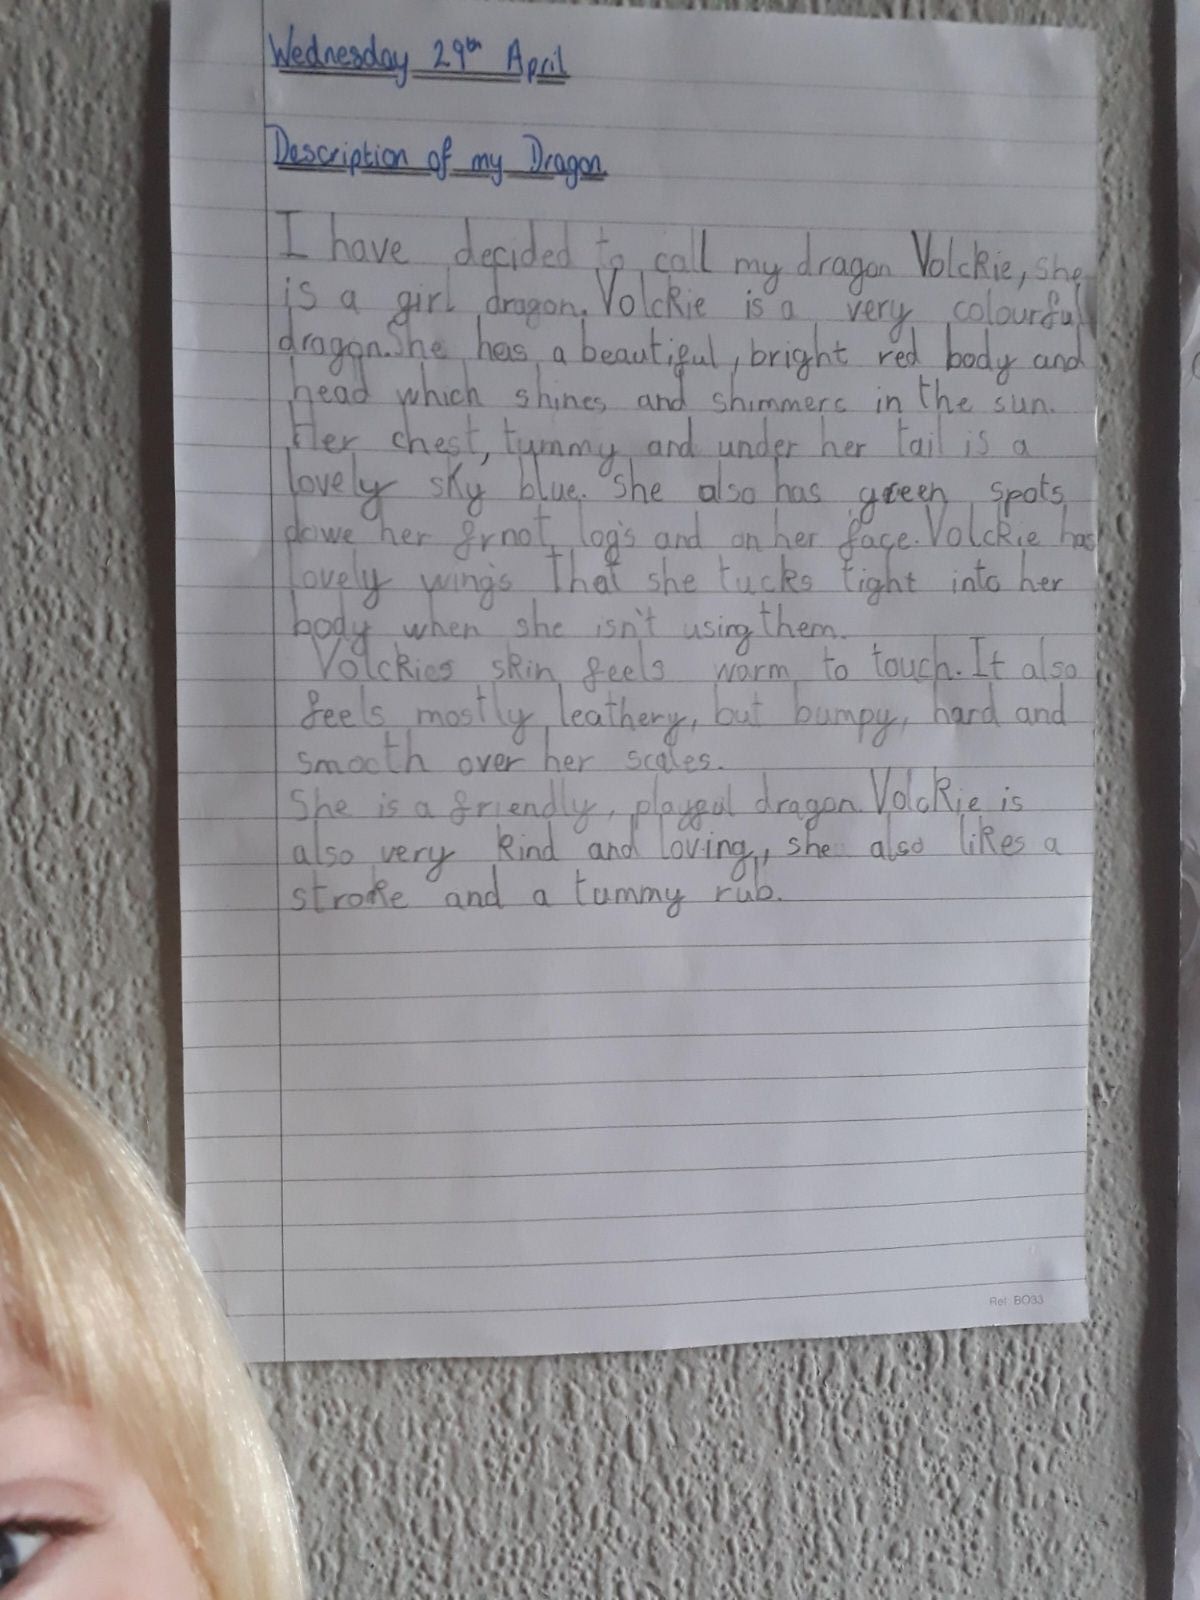 Wednesday 29th April
Description of my Dragon
I have decided to call my dragon Volckie, she
is a girl dragon. Volckie is a very colourful
dragon. She has a beautiful, bright red body and
head which shines and shimmers in the sun.
Her chest, tummy and under her tail is a
lovely sky blue. She also has green spots
dowe her frnot log's and on her face. Volckie has
lovely wing's that she tucks tight into her
body when she isn't using them.
Volckies skin feels warm to touch. It also
feels mostly leathery, but bumpy, hard and
smooth over her scales.
She is a friendly, playful dragon. Volckie is
also very kind and loving, she also likes a
stroke and a tummy rub.
Ref: BO33